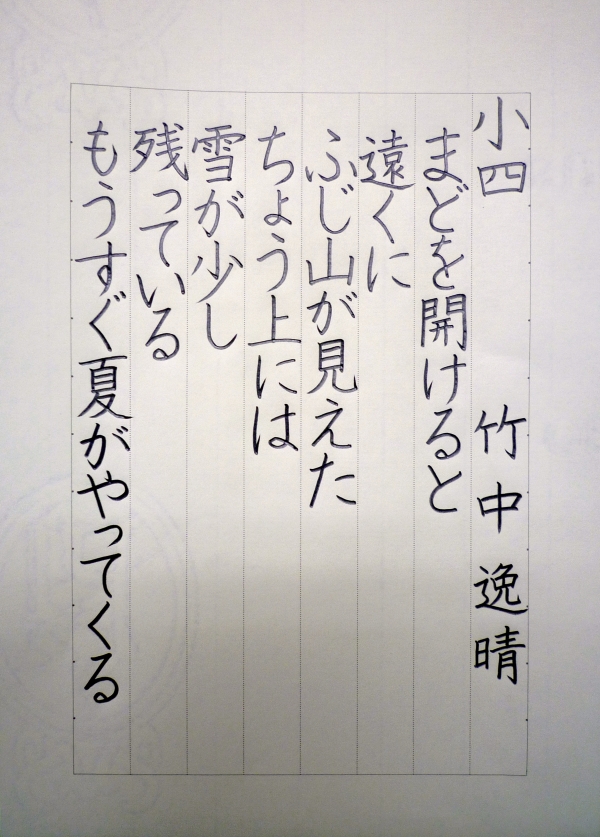 小四 竹中逸晴
まどを開けると
遠くに
ふじ山が見えた
ちょう上には
雪が少し
残っている
もうすぐ夏がやってくる